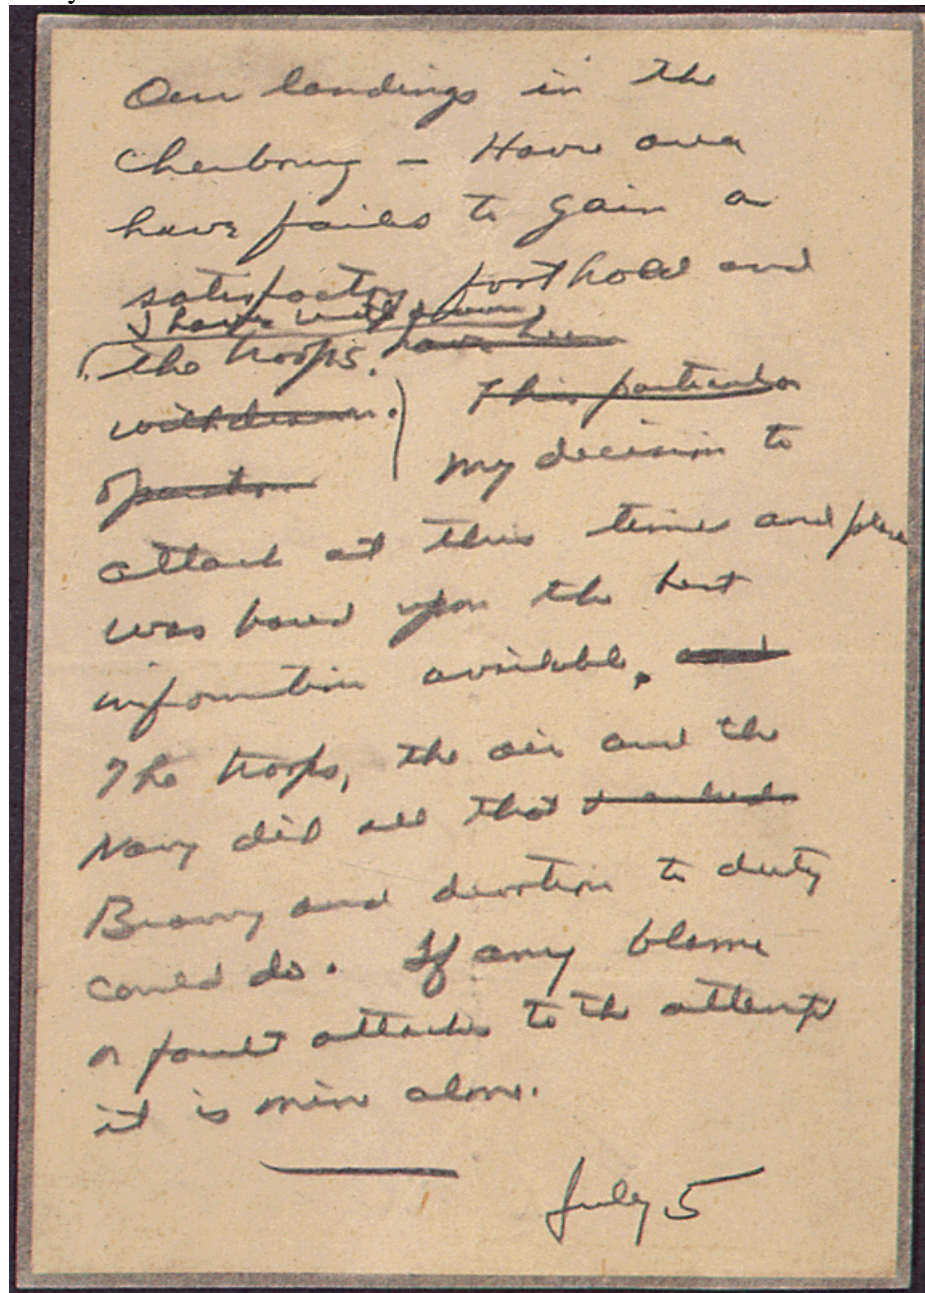 Our landings in the
Cherbourg – Havre area
have failed to gain a
satisfactory foothold and
I have withdrawn
the troops. have been
withdrawn. This particular
operation My decision to
attack at this time and place
was based upon the best
information available. and
The troops, the air and the
Navy did all that
Bravery and devotion to duty
could do. If any blame
or fault attaches to the attempt
it is mine alone.
July 5